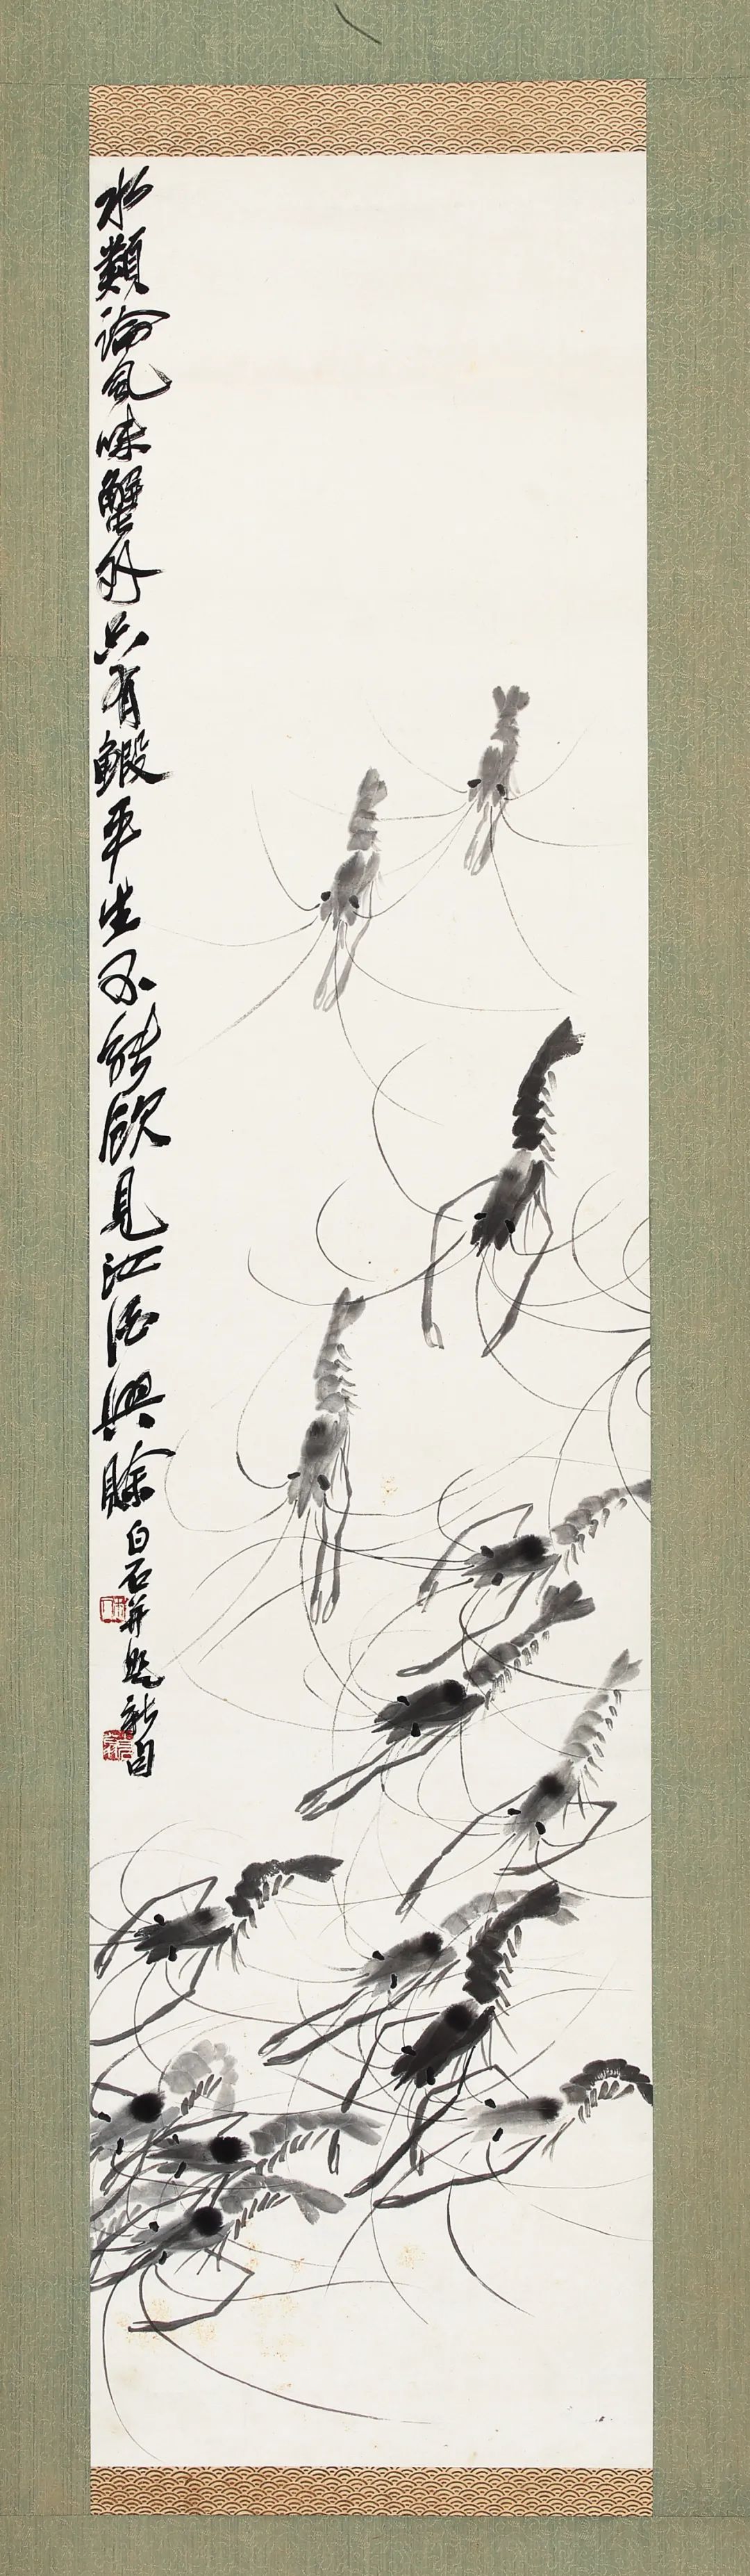 水類論風味蟹外只有鰕平生不能飲見汝酒興賒
白石并題新句